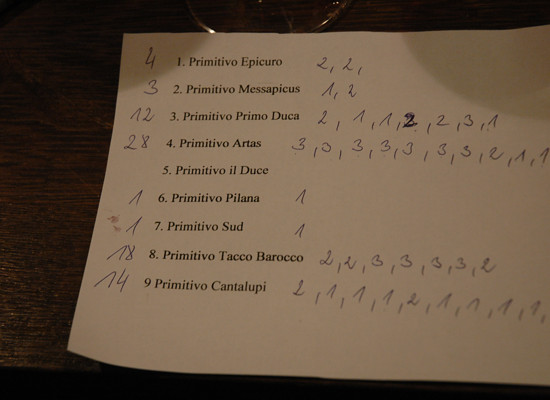 4 1. Primitivo Epicuro 2, 2,
3 2. Primitivo Messapicus 1, 2
12 3. Primitivo Primo Duca 2, 1, 1, 2, 2, 3, 1
28 4. Primitivo Artas 3, 3, 3, 3, 3, 3, 3, 2, 1, 1
5. Primitivo il Duce
1 6. Primitivo Pilana 1
1 7. Primitivo Sud 1
18 8. Primitivo Tacco Barocco 2, 2, 3, 3, 3, 3, 2
14 9 Primitivo Cantalupi 2, 1, 1, 1, 2, 1, 1, 1, 1,